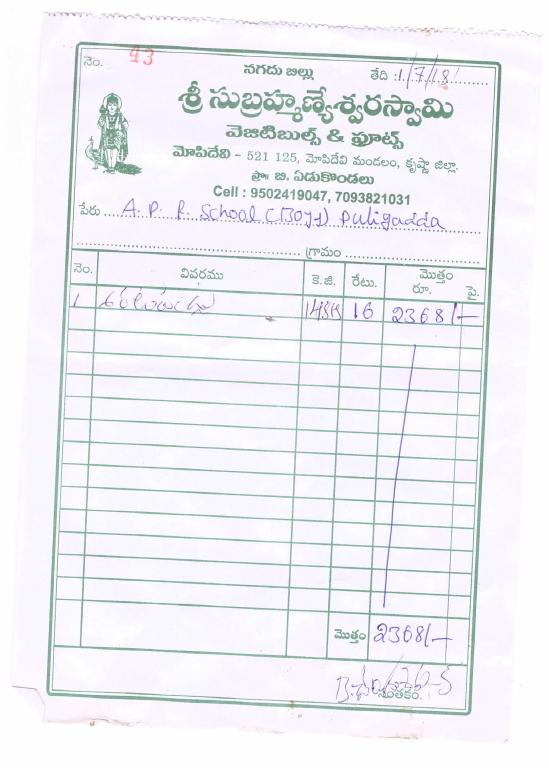 నెం. 43
నగదు బిల్లు
తేది :1/7/18
శ్రీ సుబ్రహ్మణ్యేశ్వరస్వామి
వెజిటిబుల్స్ & ఫ్రూట్స్
మోపిదేవి - 521 125, మోపిదేవి మండలం, కృష్ణా జిల్లా.
ప్రొ౹౹ బి. ఏడుకొండలు
Cell : 9502419047, 7093821031
పేరు A. P. R. School (Boys) Puligadda
గ్రామం
నెం. వివరము కె.జి. రేటు. మొత్తం రూ. పై.
1 148 16 2368/-
మొత్తం 2368/-
సంతకం.